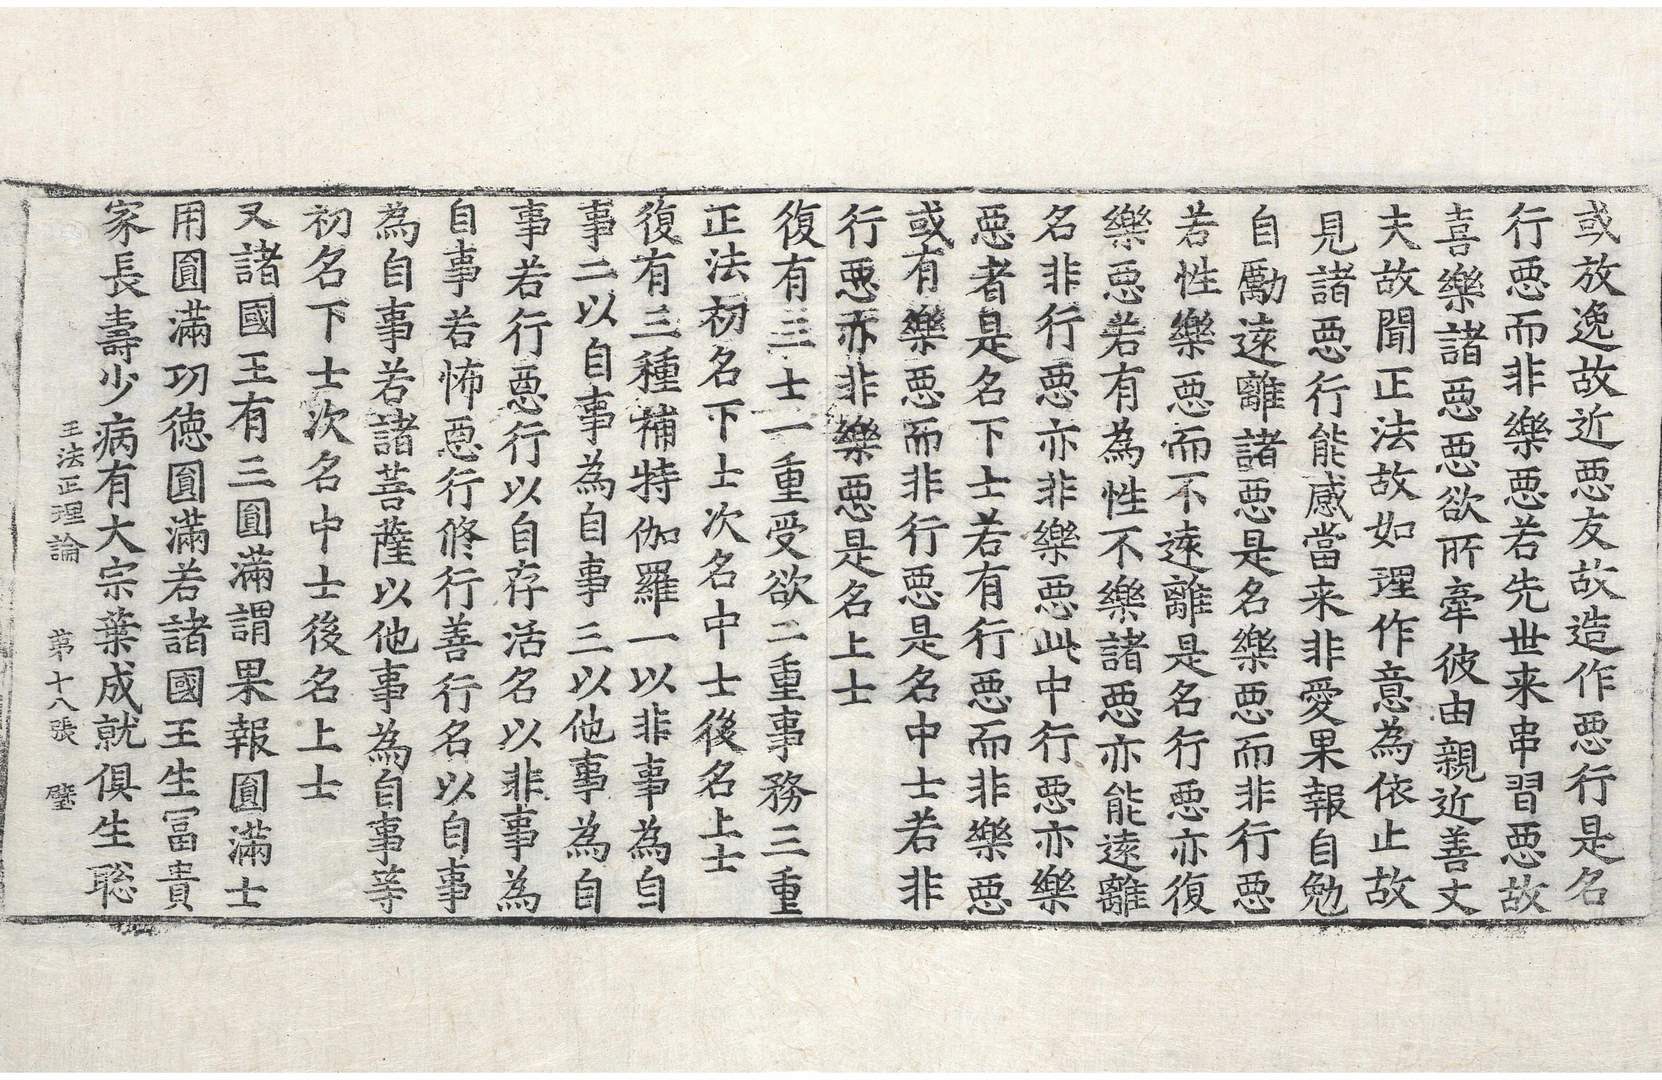 或放逸故近惡友故造作惡行是名
行惡而非樂惡若先世来串習惡故
喜樂諸惡惡欲所牽彼由親近善丈
夫故聞正法故如理作意為依止故
見諸惡行能感當来非愛果報自勉
自勵遠離諸惡是名樂惡而非行惡
若性樂惡而不遠離是名行惡亦復
樂惡若有為性不樂諸惡亦能遠離
名非行惡亦非樂惡此中行惡亦樂
惡者是名下士若有行惡而非樂惡
或有樂惡而非行惡是名中士若非
行惡亦非樂惡是名上士
復有三士一重受欲二重事務三重
正法初名下士次名中士後名上士
復有三種補特伽羅一以非事為自
事二以自事為自事三以他事為自
事若行惡行以自存活名以非事為
自事若怖惡行修行善行名以自事
為自事若諸菩薩以他事為自事等
初名下士次名中士後名上士
又諸國王有三圓滿謂果報圓滿士
用圓滿功德圓滿若諸國王生冨貴
家長壽少病有大宗葉成就俱生聡
王法正理論 第十八張 璧